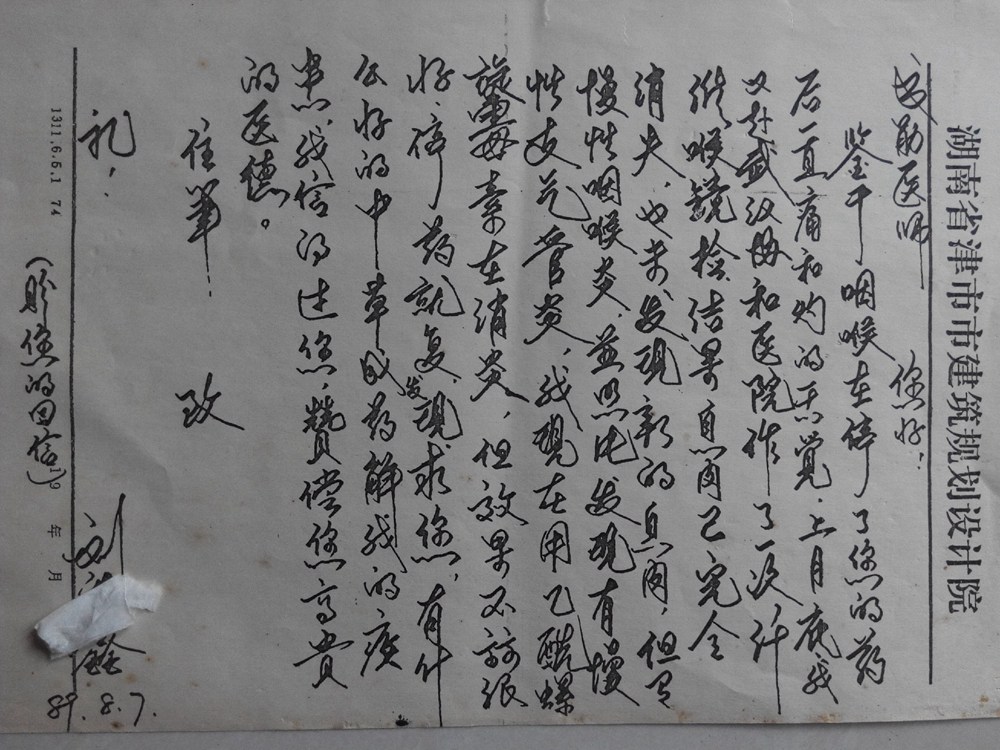 湖南省津市市建筑规划设计院
医师 您好:
鉴于咽喉在停了您的药
后一直痛和灼的感觉,上月底我
又赴武汉协和医院作了一次纤
维喉镜检结果息肉已完全
消失,也未发现新的息肉,但是
慢性咽喉炎,并照此发现有慢
性支气管炎,我现在用乙酰螺
旋霉素在消炎,但效果不说很
好,停药就复发,现求您,有什
么好的中草成药解我的疾
患,我信得过您,赞偿您高贵
的医德。
住笔: 致
礼!
刘 鑫
(盼您的回信)
19 年 月
89.8.7.
1311.6.5.1 74